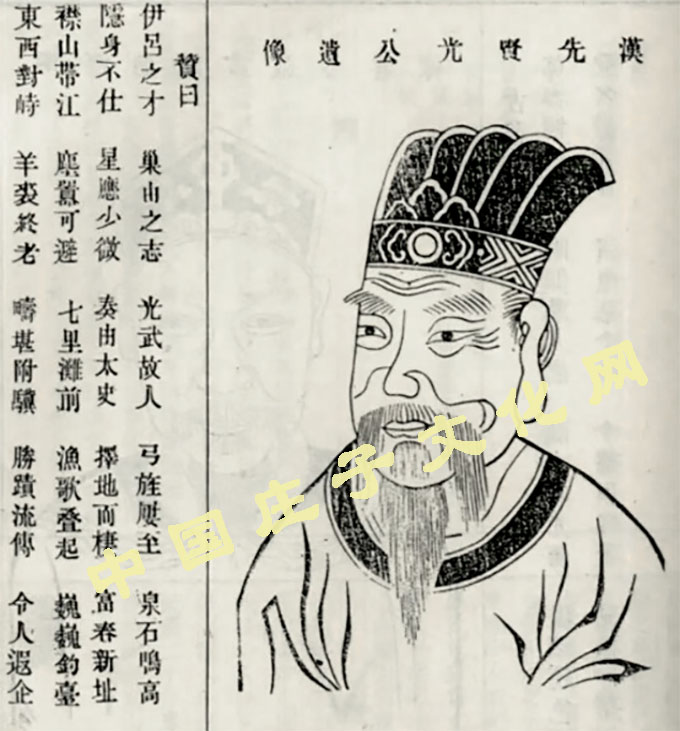 漢先賢光公遺像
贊曰
伊呂之才 巢由之志 光武故人 弓旌屢至 泉石鳴高
隱身不仕 星應少微 奏由太史 擇地而棲 富春新址
襟山帶江 塵囂可避 七里灘前 漁歌叠起 巍巍釣臺
東西對峙 羊裘終老 疇堪附驥 勝蹟流傳 令人遐企
中国庄子文化网